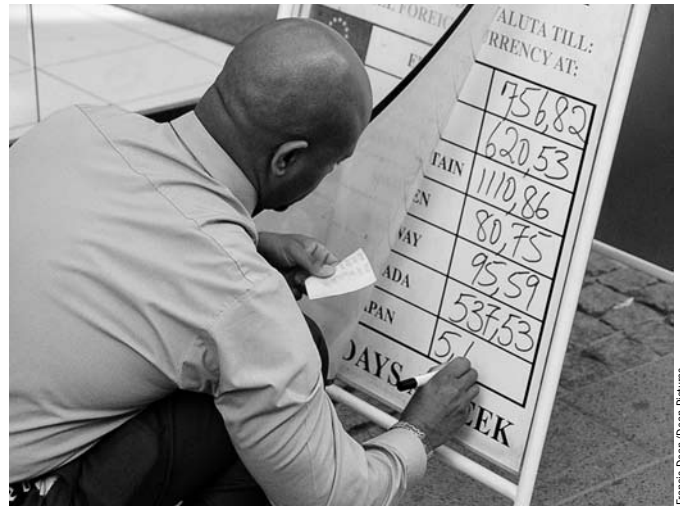 FOREIG
ALUTA TILL:
RRENCY AT:
756,82
620,53
TAIN 1110,86
EN 80,75
WAY 95,59
ADA 537,53
PAN 5
DAYS
EEK
Francis Dean/Dean Pictures